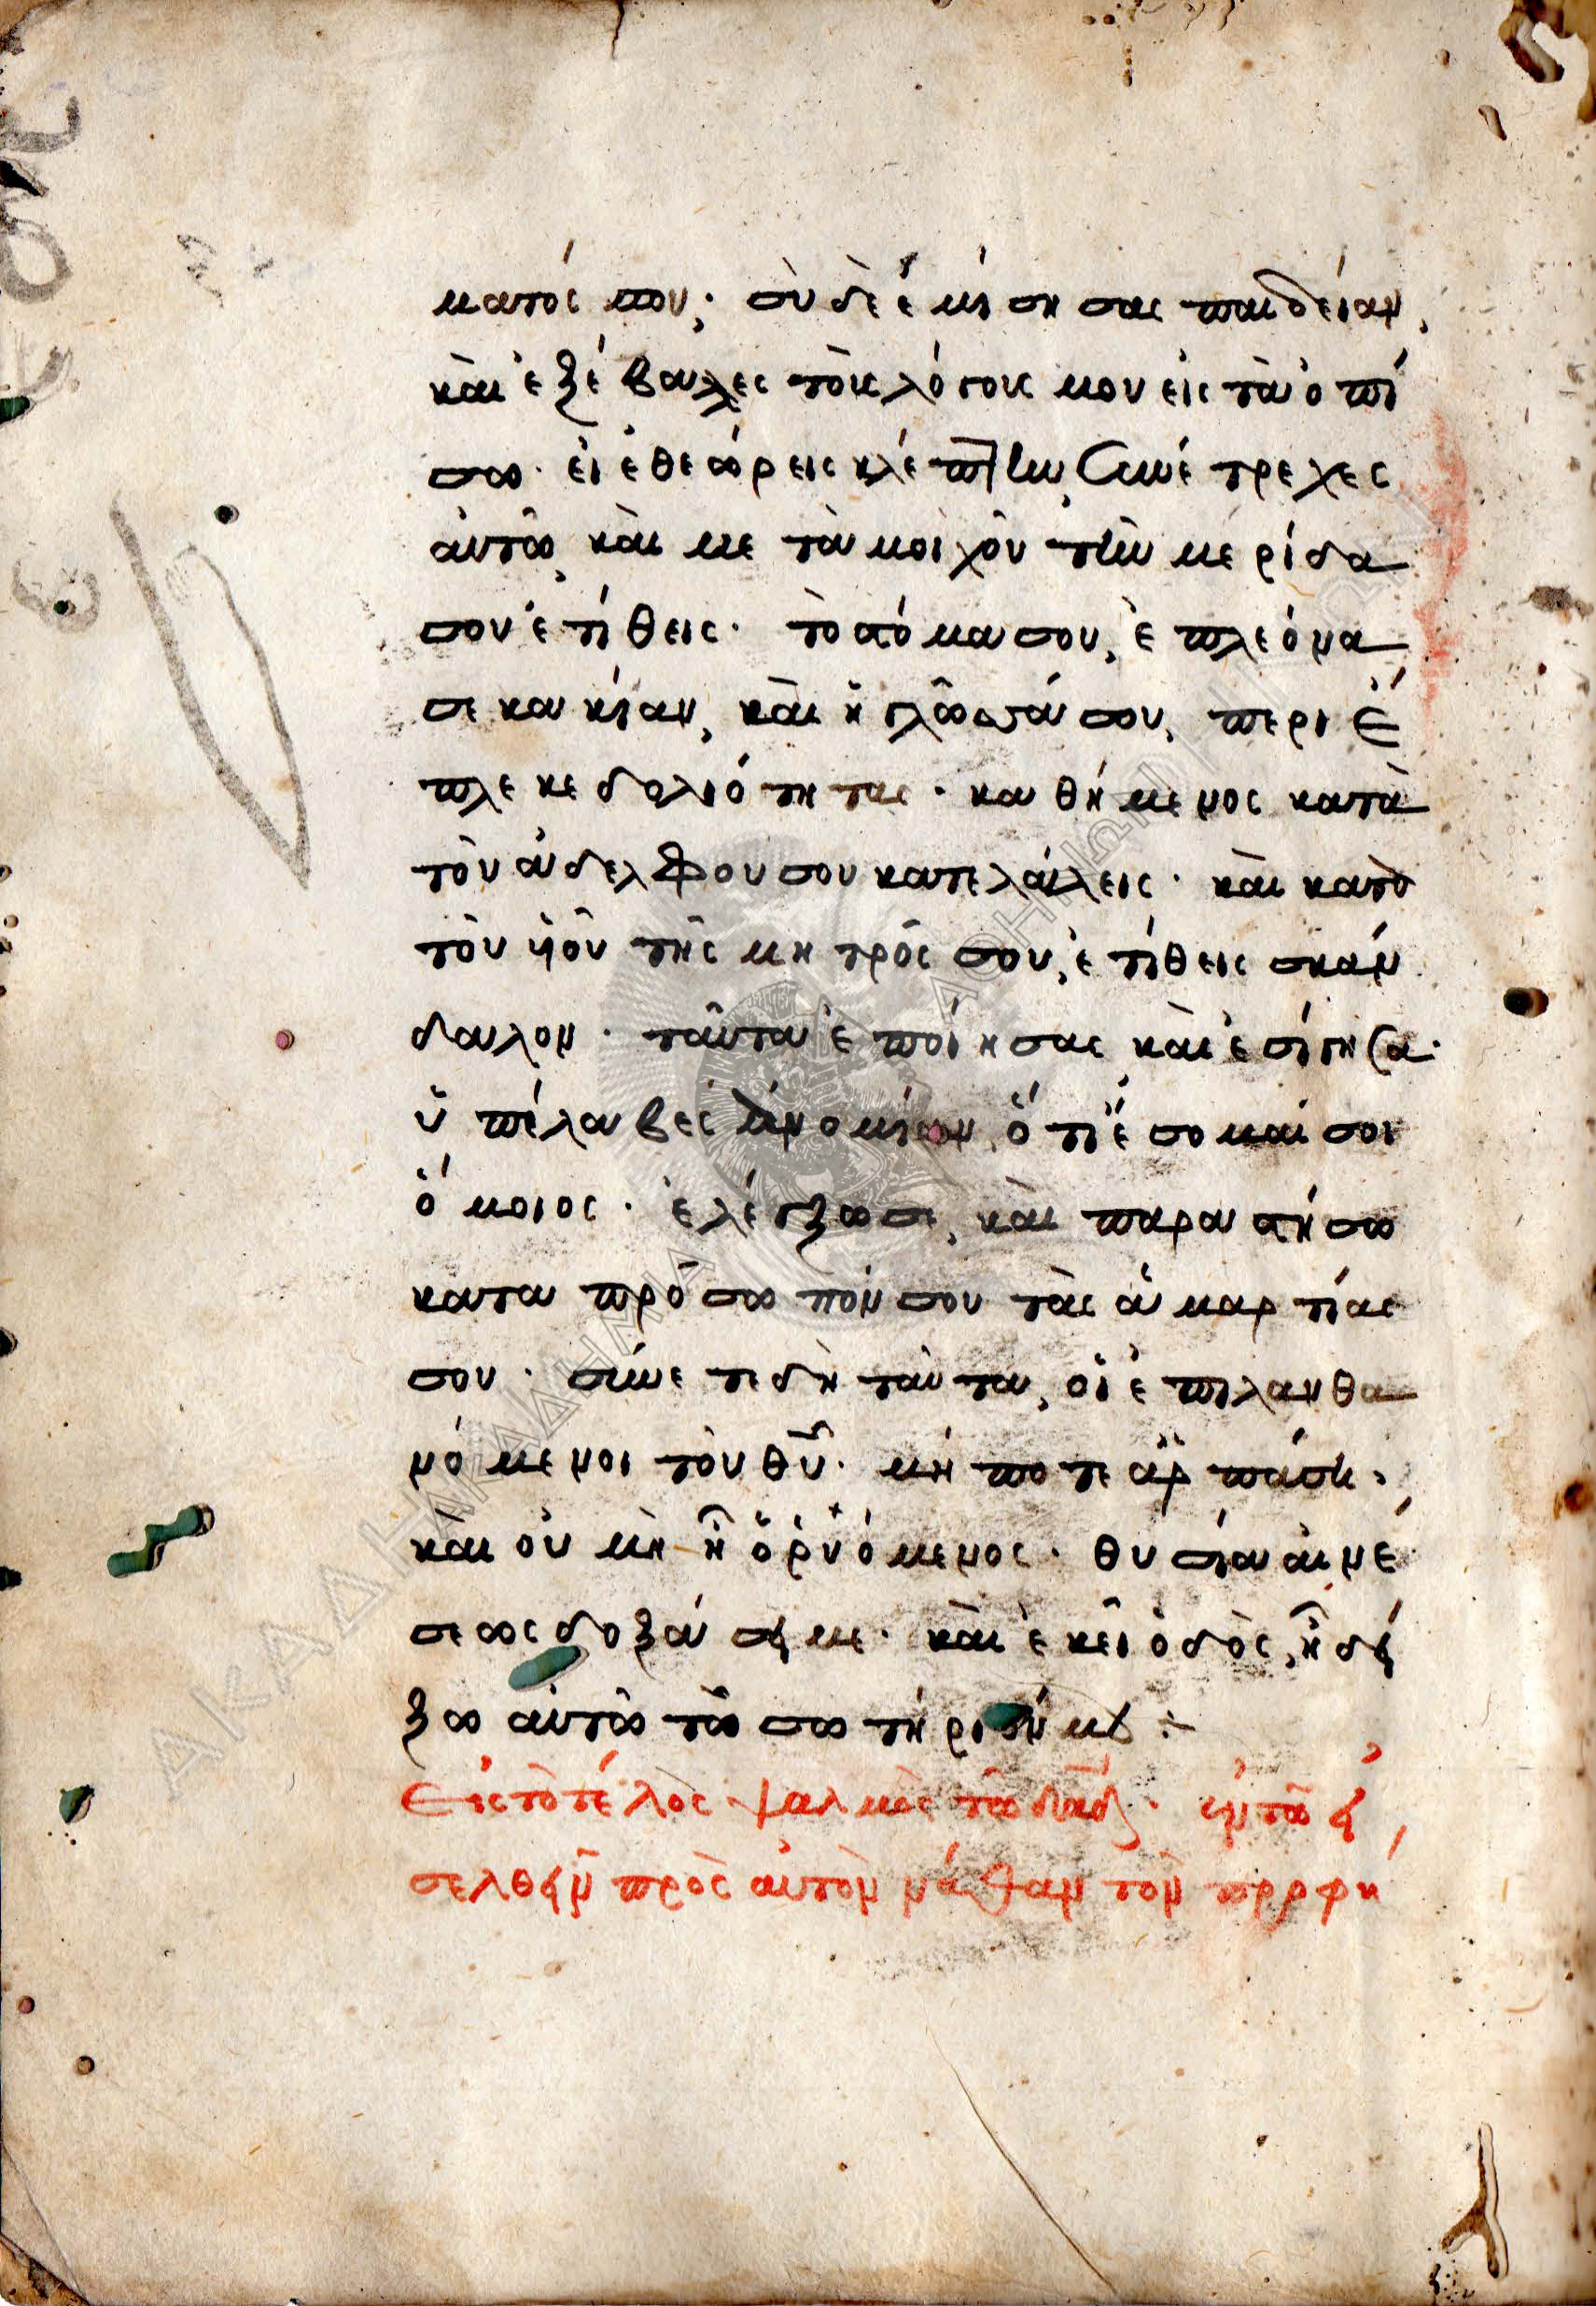 ματός σου· σὺ δὲ ἐμίσησας παιδείαν,
καὶ ἐξέβαλες τοὺς λόγους μου εἰς τὰ ὀπί
σω· εἰ ἐθεώρεις κλέπτην, συνέτρεχες
αὐτῶ, καὶ με τὰ μοιχὸν τὴν μερίδα
σου ἐτίθεις· τὸ στόμα σου, ἐπλεόνα
σε κακίαν, καὶ ἡ γλῶσσά σου, περιέ
πλεκε δολιότητας· καθήμενος κατὰ
τὸν ἀδελφοῦ σου κατελάλεις· καὶ κατὰ
τὸν ὑὸν τῆς μητρός σου, ἐτίθεις σκάν
δαλον· ταῦτα ἐποίησας καὶ ἐσίγησα·
ὑπέλαβες ἀνομίαν, ὅτι ἔσομαί σοι
ὅμοιος· ἐλέγξω σε, καὶ παραστήσω
κατα πρόσωπόν σου τὰς ἁμαρτίας
σου· σύνετε δὴ ταῦτα, οἱ ἐπιλανθα
νόμενοι τὸν θν̄· μήποτε ἁρπάση·
καὶ οὐ μὴ ἦ ὁ ῥυόμενος· θυσία αἰνέ
σεως δοξάσει με· καὶ ἐκεῖ ὁδὸς, ἧ δεί
ξω αὐτῶ τὸ σωτήριόν μου ÷
Εἰς τὸ τέλος· ψαλμὸς τῶ δαδ· ἐν τῶ εἰ
σελθεῖν πρὸς αὐτὸν νάθαν τὸν προφή
ΑΚΑΔΗΜΙΑ ΑΘΗΝΩΝ